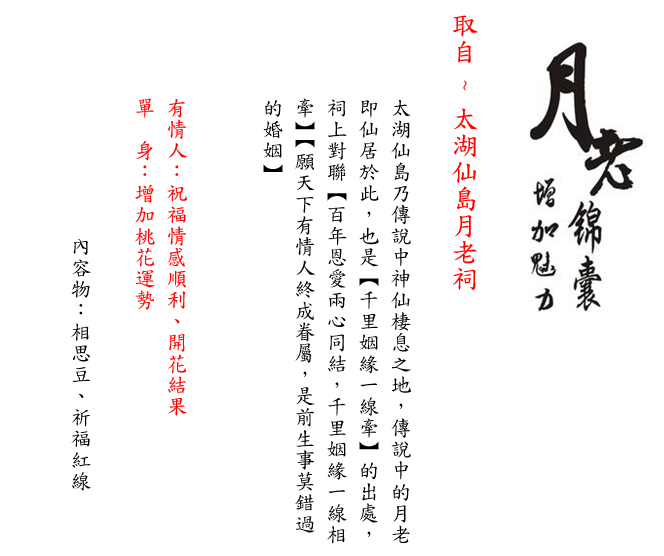 月老
錦囊
增加魅力
取自 ~ 太湖仙島月老祠
太湖仙島乃傳說中神仙棲息之地，傳說中的月老
即仙居於此，也是【千里姻緣一線牽】的出處，
祠上對聯【百年恩愛兩心同結，千里姻緣一線相
牽】【願天下有情人終成眷屬，是前生事莫錯過
的婚姻】
有情人：祝福情感順利、開花結果
單 身：增加桃花運勢
內容物：相思豆、祈福紅線